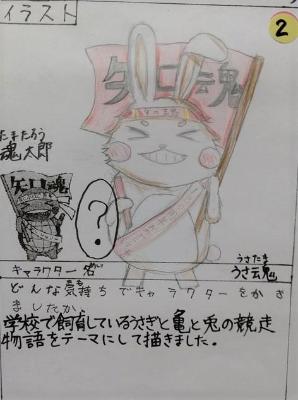 イラスト
2
矢口魂
たまたろう
魂太郎
矢口魂
?
キャラクター名
うさたま
うさ魂
どんな気持ちでキャラクターをかき
ましたか。
学校で飼育しているうさぎと亀と兎の競走
物語をテーマにして描きました。